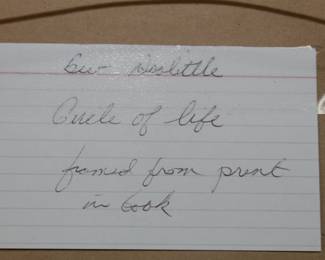 Bev Doolittle
Circle of life
framed from print
in book